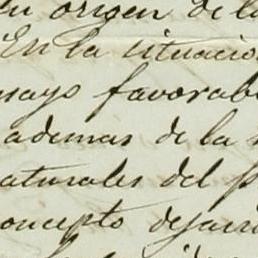 su origen de la
En la situacio
mayo favorab
ademas de la
aturales del p
oncepto dejar